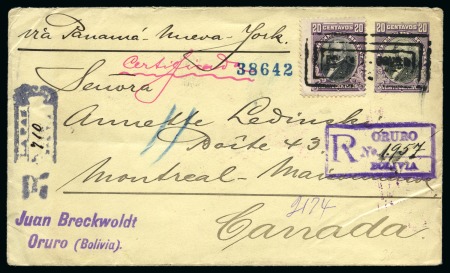 20 CENTAVOS 20
20 CENTAVOS 20
via Panamá Nueva-York.
Certificado
38642
Señora
Annette Ledinski
Boîte 43
Montreal-
Canada.
LA PAZ
910
R
ORURO
R No. 1957
BOLIVIA
2174
Juan Breckwoldt
Oruro (Bolivia).